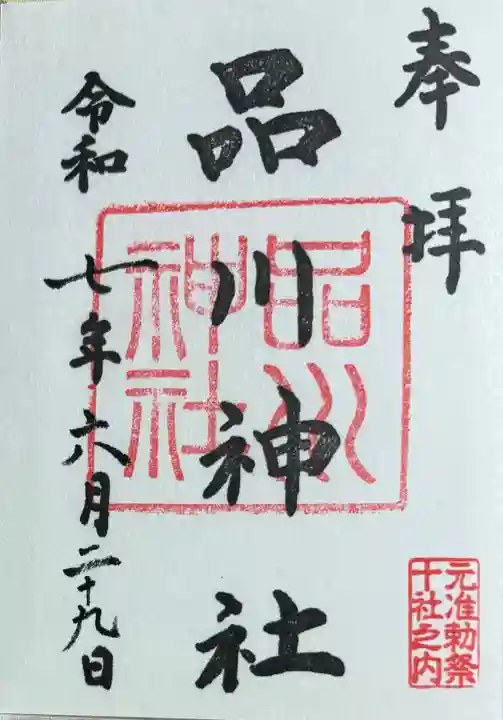 奉拝
品川神社
品川神社
元准勅祭
十社之内
令和七年六月二十九日